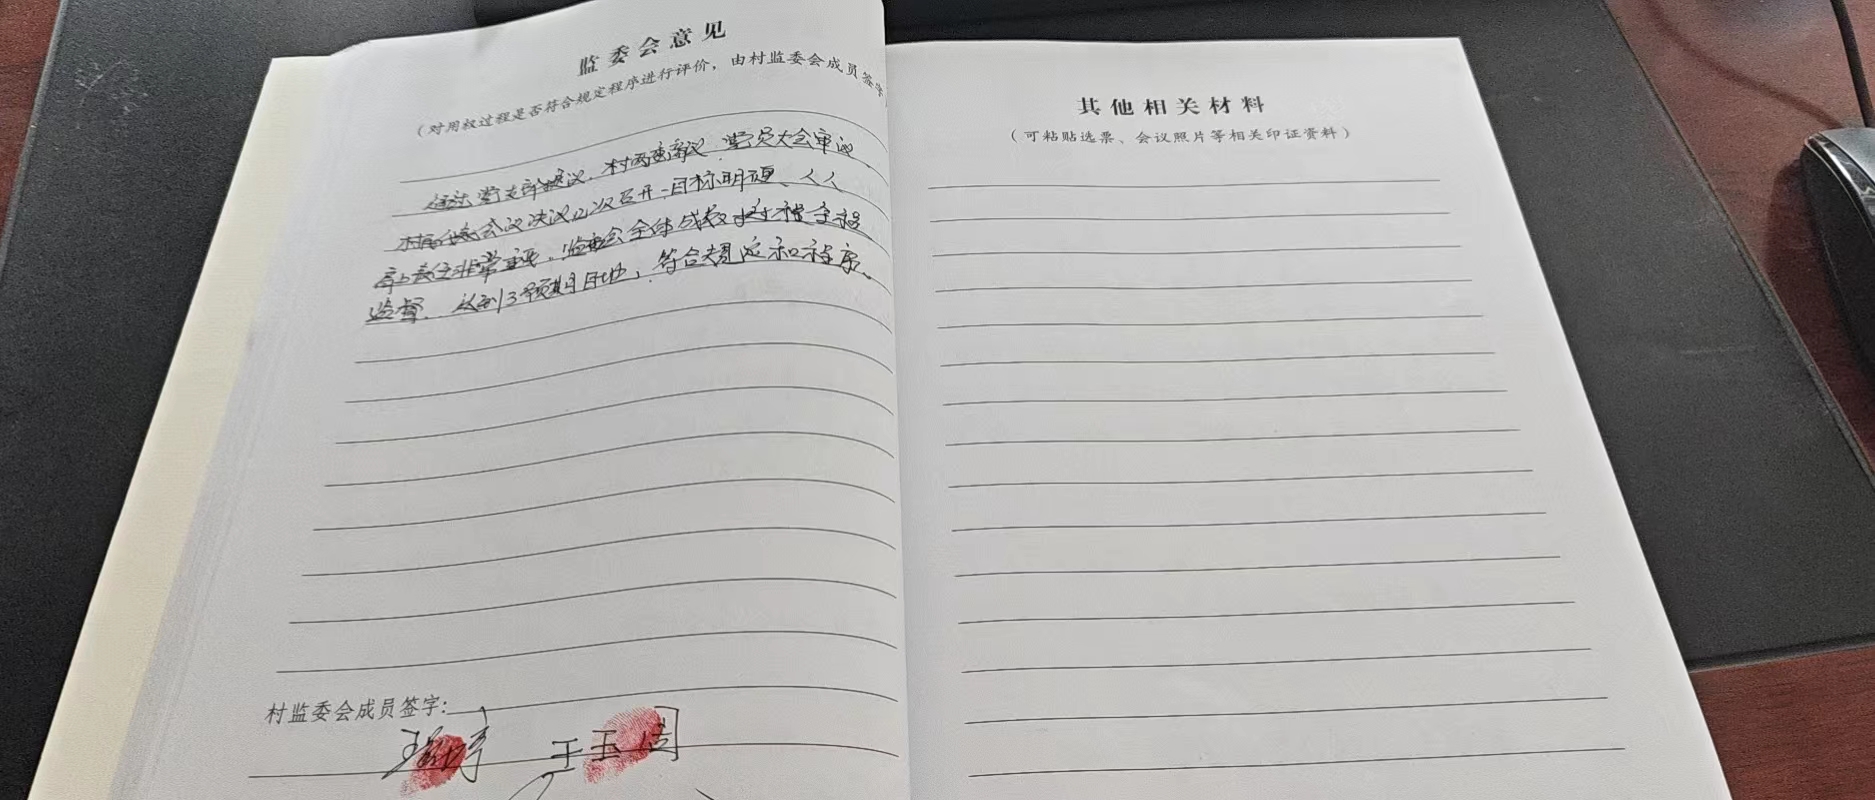 监委会意见
（对用权过程是否符合规定程序进行评价，由村监委会成员签字
通过党支部提议、村两委商议、党员大会审议
村民代表会议决议几次召开，目标明确、人人
身上责任非常重要，监委会全体成员对
监督，达到了预期目地，符合规定和程序。
村监委会成员签字：
王玉
其他相关材料
（可粘贴选票、会议照片等相关印证资料）